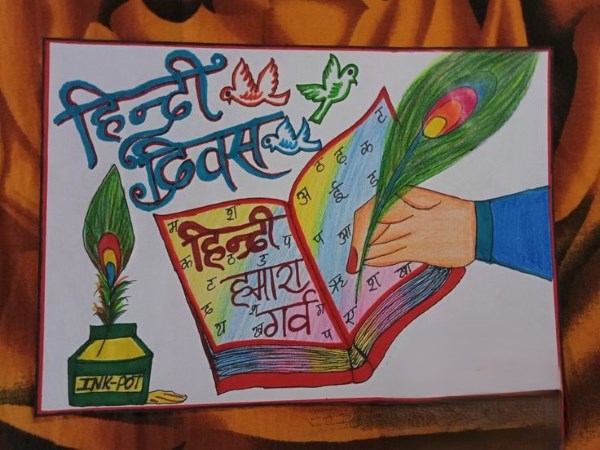 हिन्दी
दिवस
ठ ढ़ क ट
अ ई ड
म श
हिन्दी
क
प आ
हमारा
गर्व
ऋ श
INK-POT